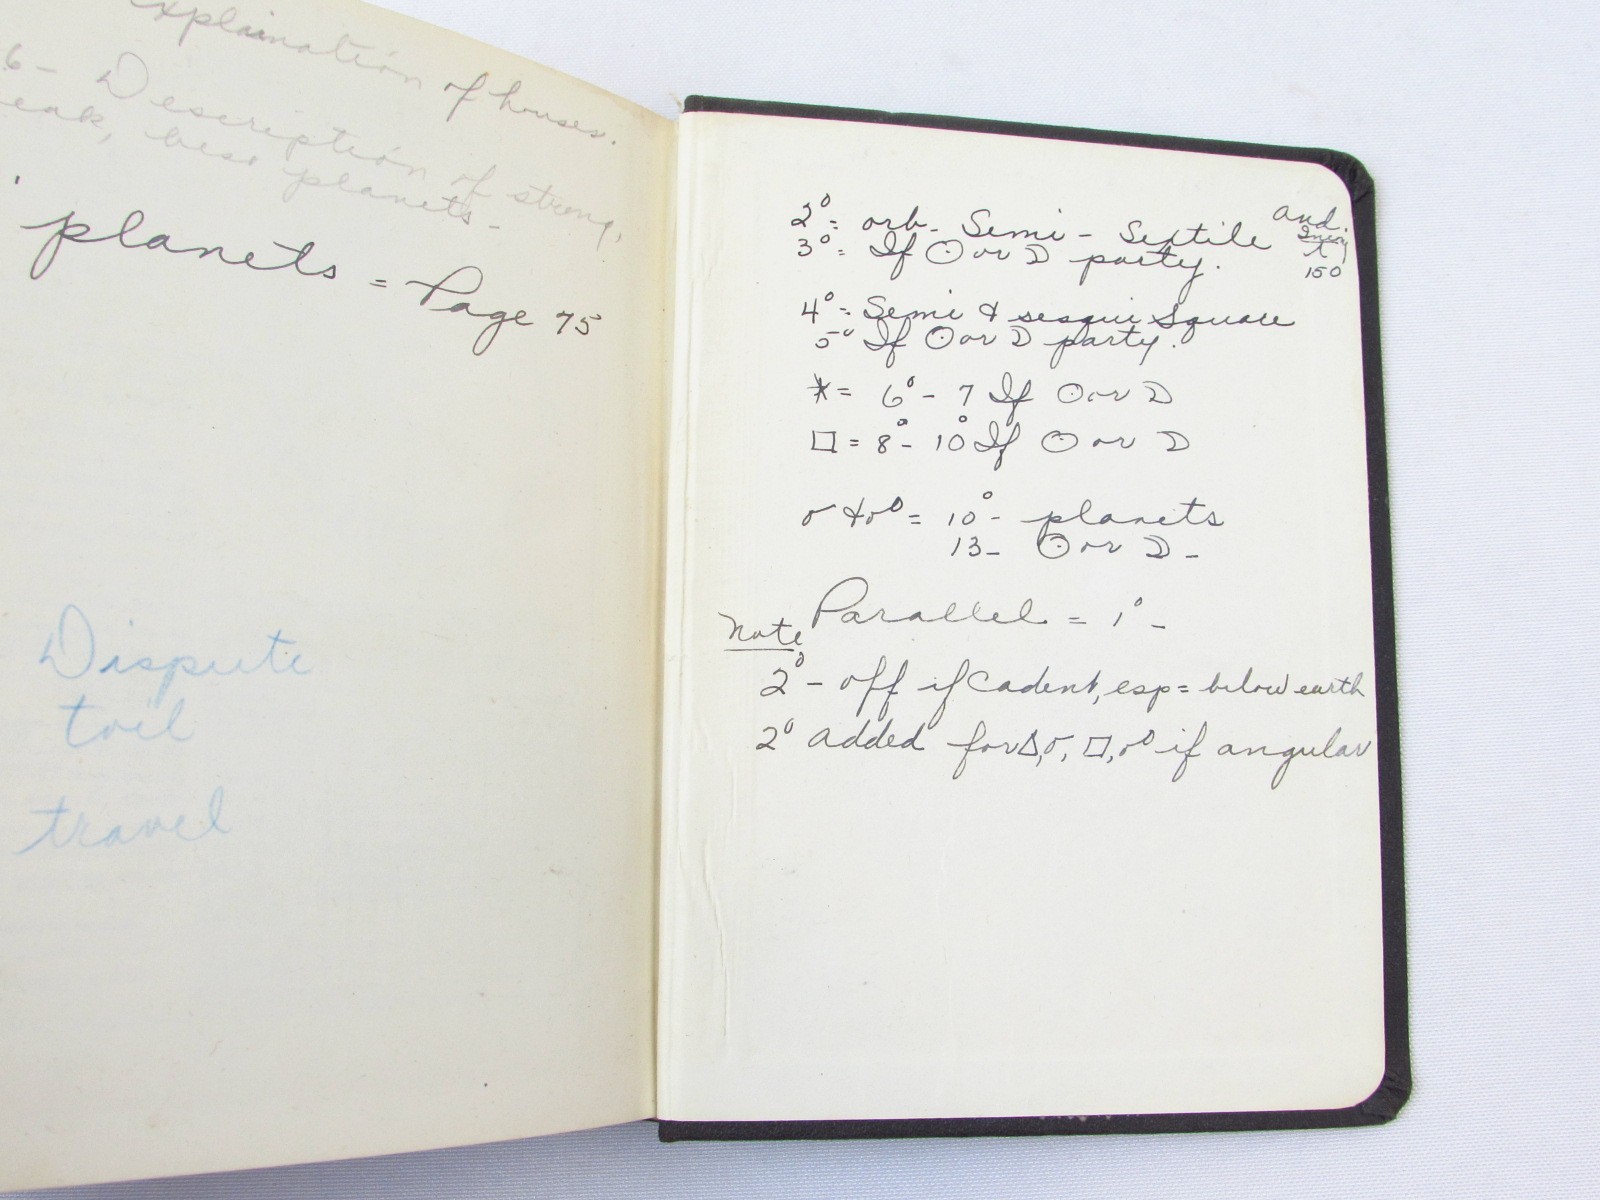 explaination of houses.
6- Description of strong,
eak, besr planets-
planets = Page 75
Dispute
toil
travel
2° = orb. Semi - Sextile and.
3° = If ☉ or ☽ party. 150
4° = Semi & sesqui Square
5° If ☉ or ☽ party.
⚹ = 6° - 7 If ☉ or ☽
□ = 8° - 10° If ☉ or ☽
☌ & ☍ = 10° - planets
13 - ☉ or ☽ -
Parallel = 1° -
Note
2° - off if Cadent, esp = below earth
2° added for △, ☌, □, ☍ if angular